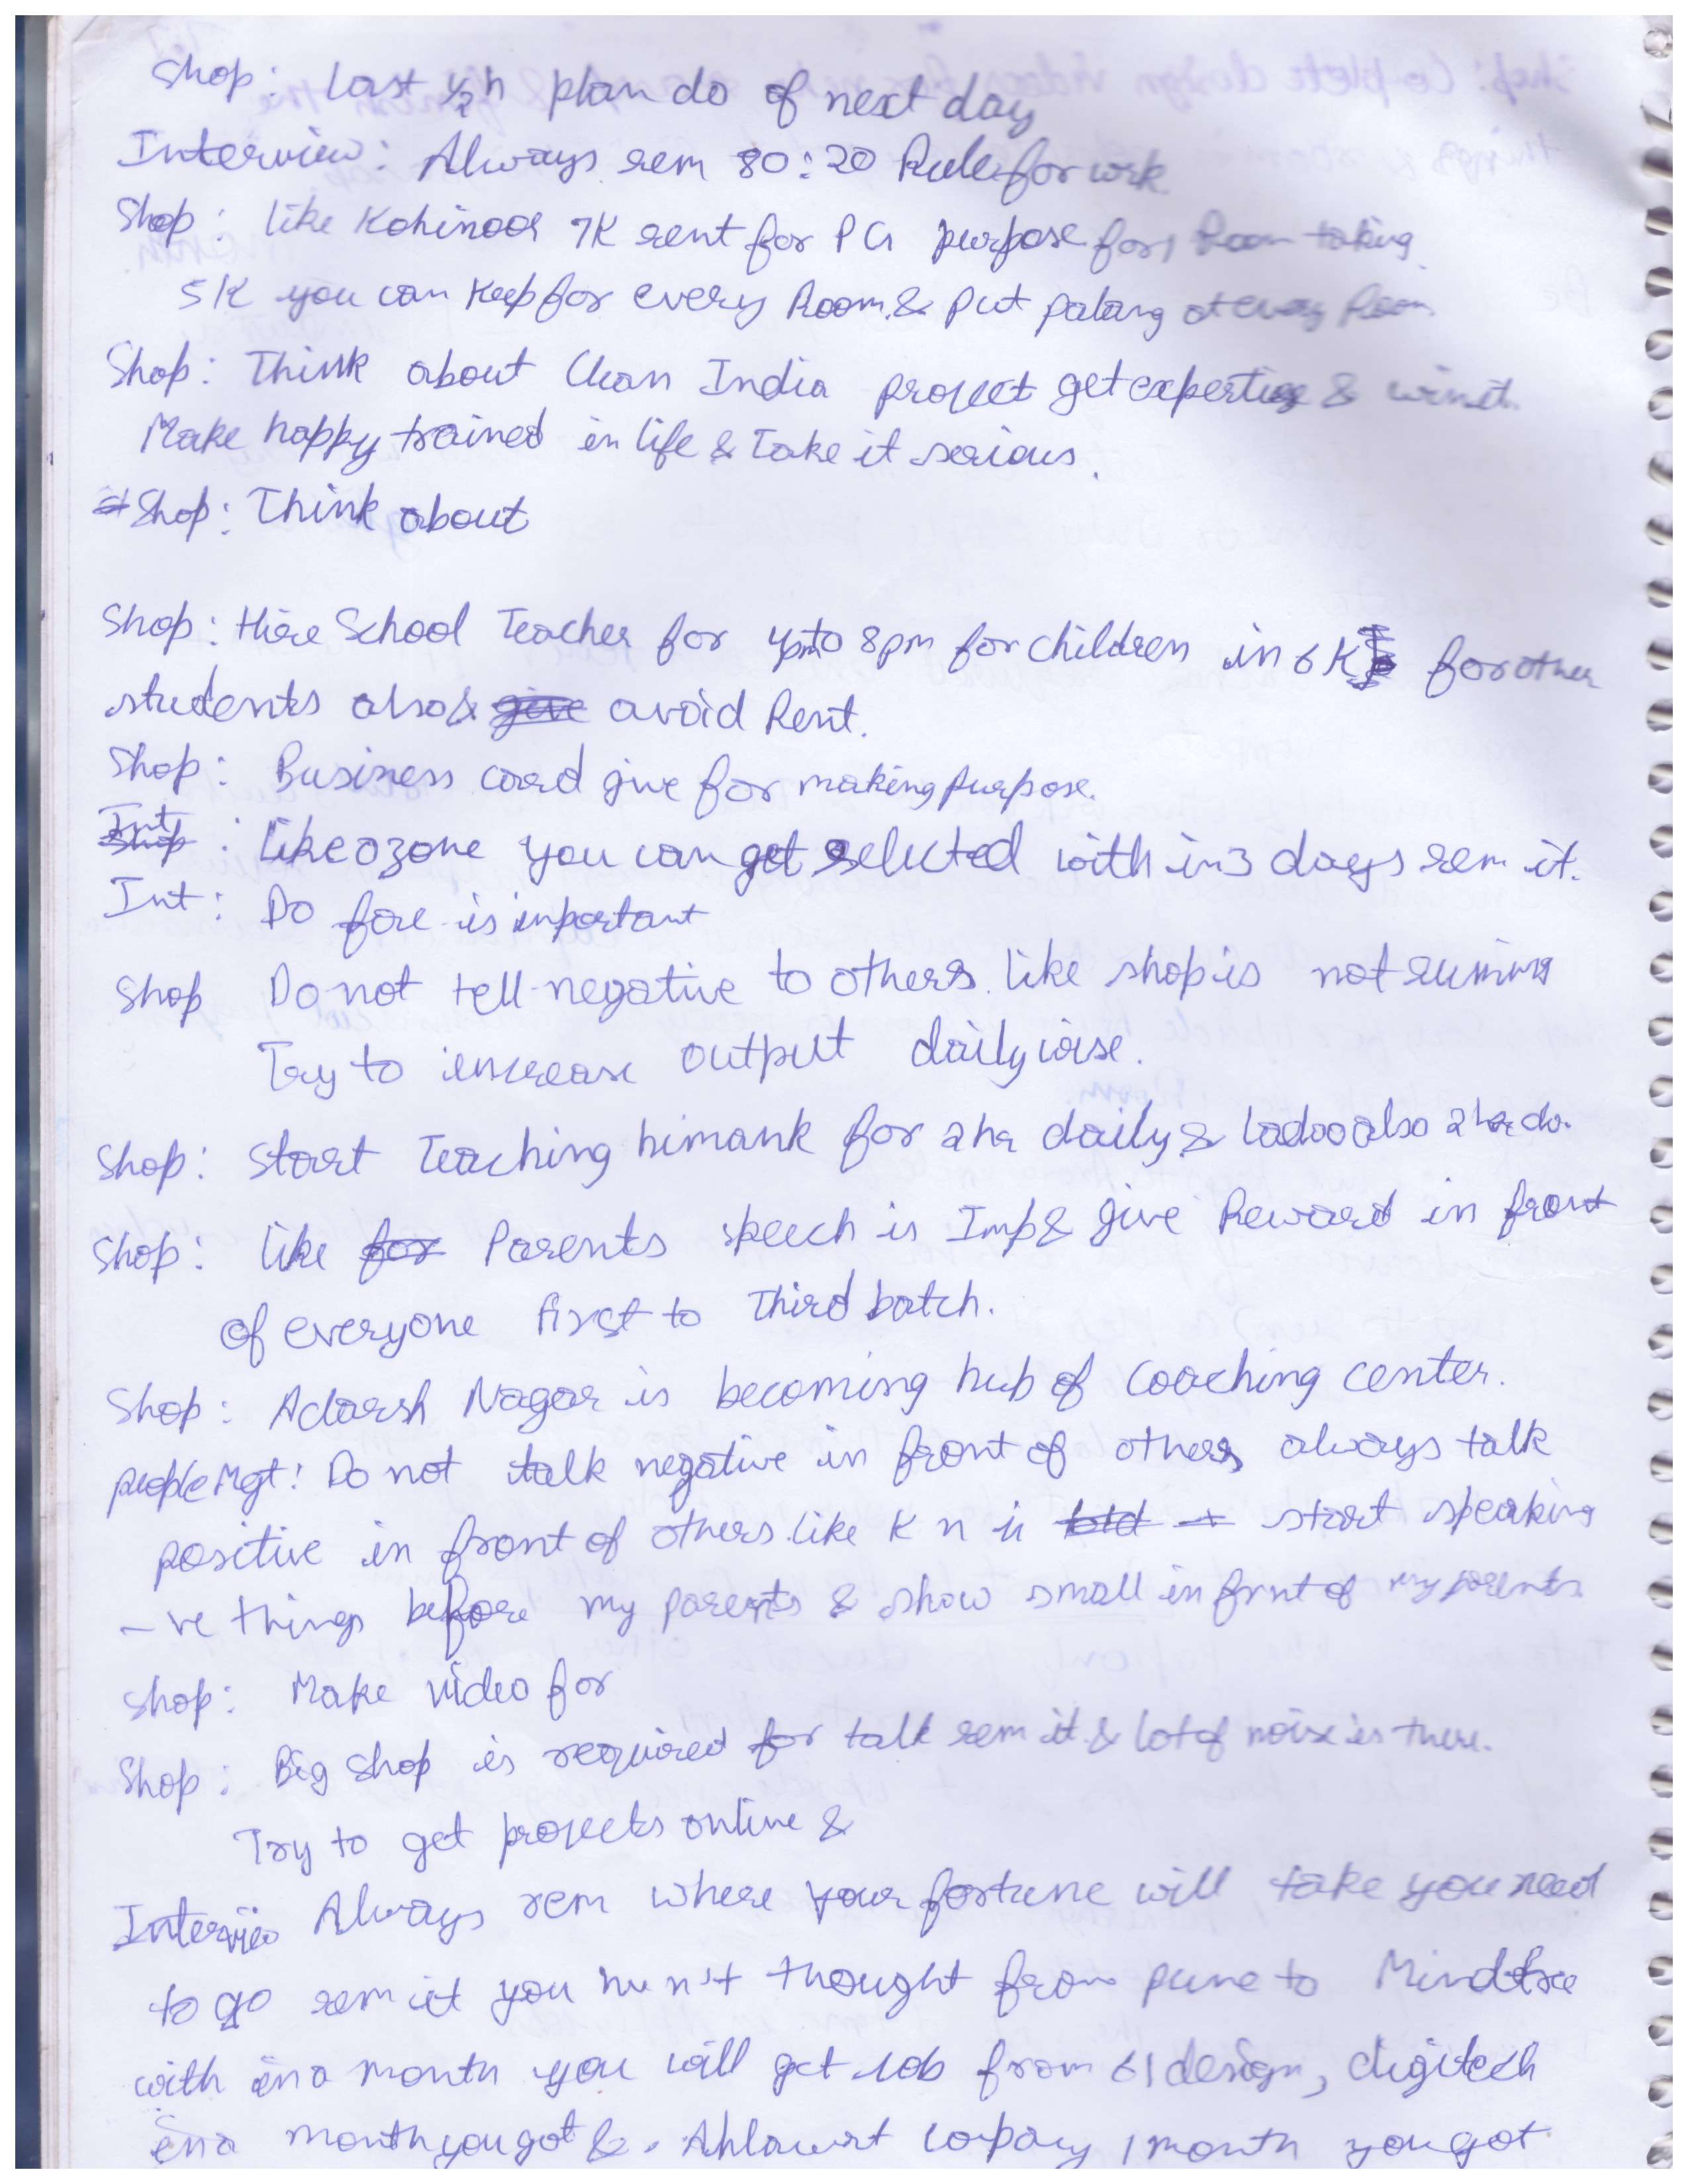 Shop: Last ½ h plan do of next day
Interview: Always rem 80:20 Rule for wrk
Shop: like Kohinoor 7K rent for PG purpose for 1 Room taking
5K you can keep for every Room & put palang at every Room
Shop: Think about Clean India project get expertise & win it.
Make happy trained in life & Take it serious.
Shop: Think about
Shop: Hire School Teacher for 4pm to 8pm for children in 6K for other
students also & give avoid Rent.
Shop: Business card give for making purpose.
Int: Like ozone you can get selected with in 3 days rem it.
Int: Do fore is important
Shop Do not tell negative to others. like shop is not running
Try to increase output daily wise.
Shop: Start Teaching himank for 2 hr daily & ladoo also 2 hr do.
Shop: like for Parents speech is Imp & give Reward in front
of everyone first to Third batch.
Shop: Adarsh Nagar is becoming hub of coaching center.
people Mgt: Do not talk negative in front of others, always talk
positive in front of others. like K n is start speaking
-ve things before my parents & show small in frnt of my parents.
Shop: Make video for
Shop: Big shop is required for talk rem it & lot of noise is there.
Try to get projects online &
Interviw Always rem where your fortune will take you need
to go rem it you thought from pune to Mindtree
with in a month you will get job from 61 design, digitech
in a month you got & Ahlawat copany 1 month you got